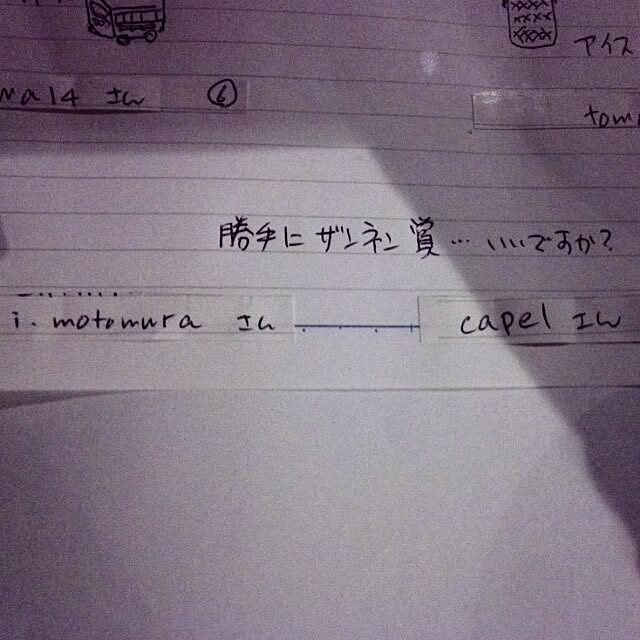 アイス
ma14 さん ⑥
tom
勝手に ザンネン賞… いいですか?
i. motomura さん
capel さん